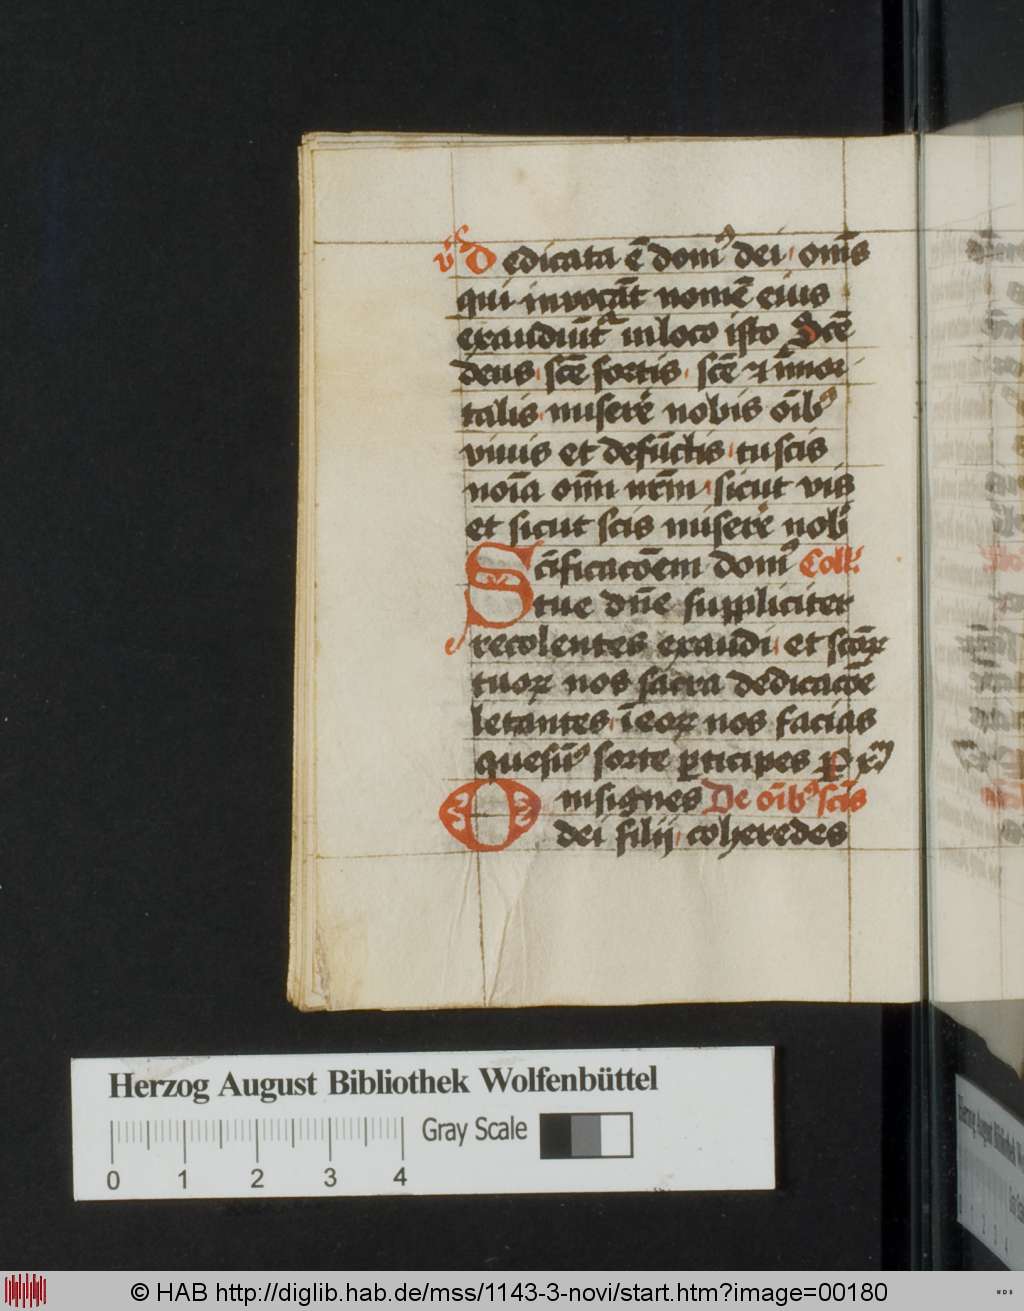 v̾s D edicata ē domꝰ dei · om̄s
qui invocāt nomē eius
exaudiūt᷑ in loco isto Scē
deus · scē fortis · scē ⁊ īmor
talis · misere᷑ nobis oībꝰ
vivis et defūctis · tu scis
noīa om̄ nr̄m · sicut vis
et sicut scis misere᷑ nob̾
Scīficacōem domꝰ Coll̾.
tue dn̄e suppliciter
recolentes exaudi · et scōꝝ
tuoꝝ nos sacra dedicacōe
letantes · ī eoꝝ nos facias
quesūꝰ sorte ꝑticipes ꝑ xm̄
O insignes De oībꝰ scīs
dei filij · coheredes
Herzog August Bibliothek Wolfenbüttel
Gray Scale
0 1 2 3 4
© HAB http://diglib.hab.de/mss/1143-3-novi/start.htm?image=00180